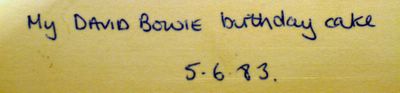 My DAVID BOWIE birthday cake
5.6.83.